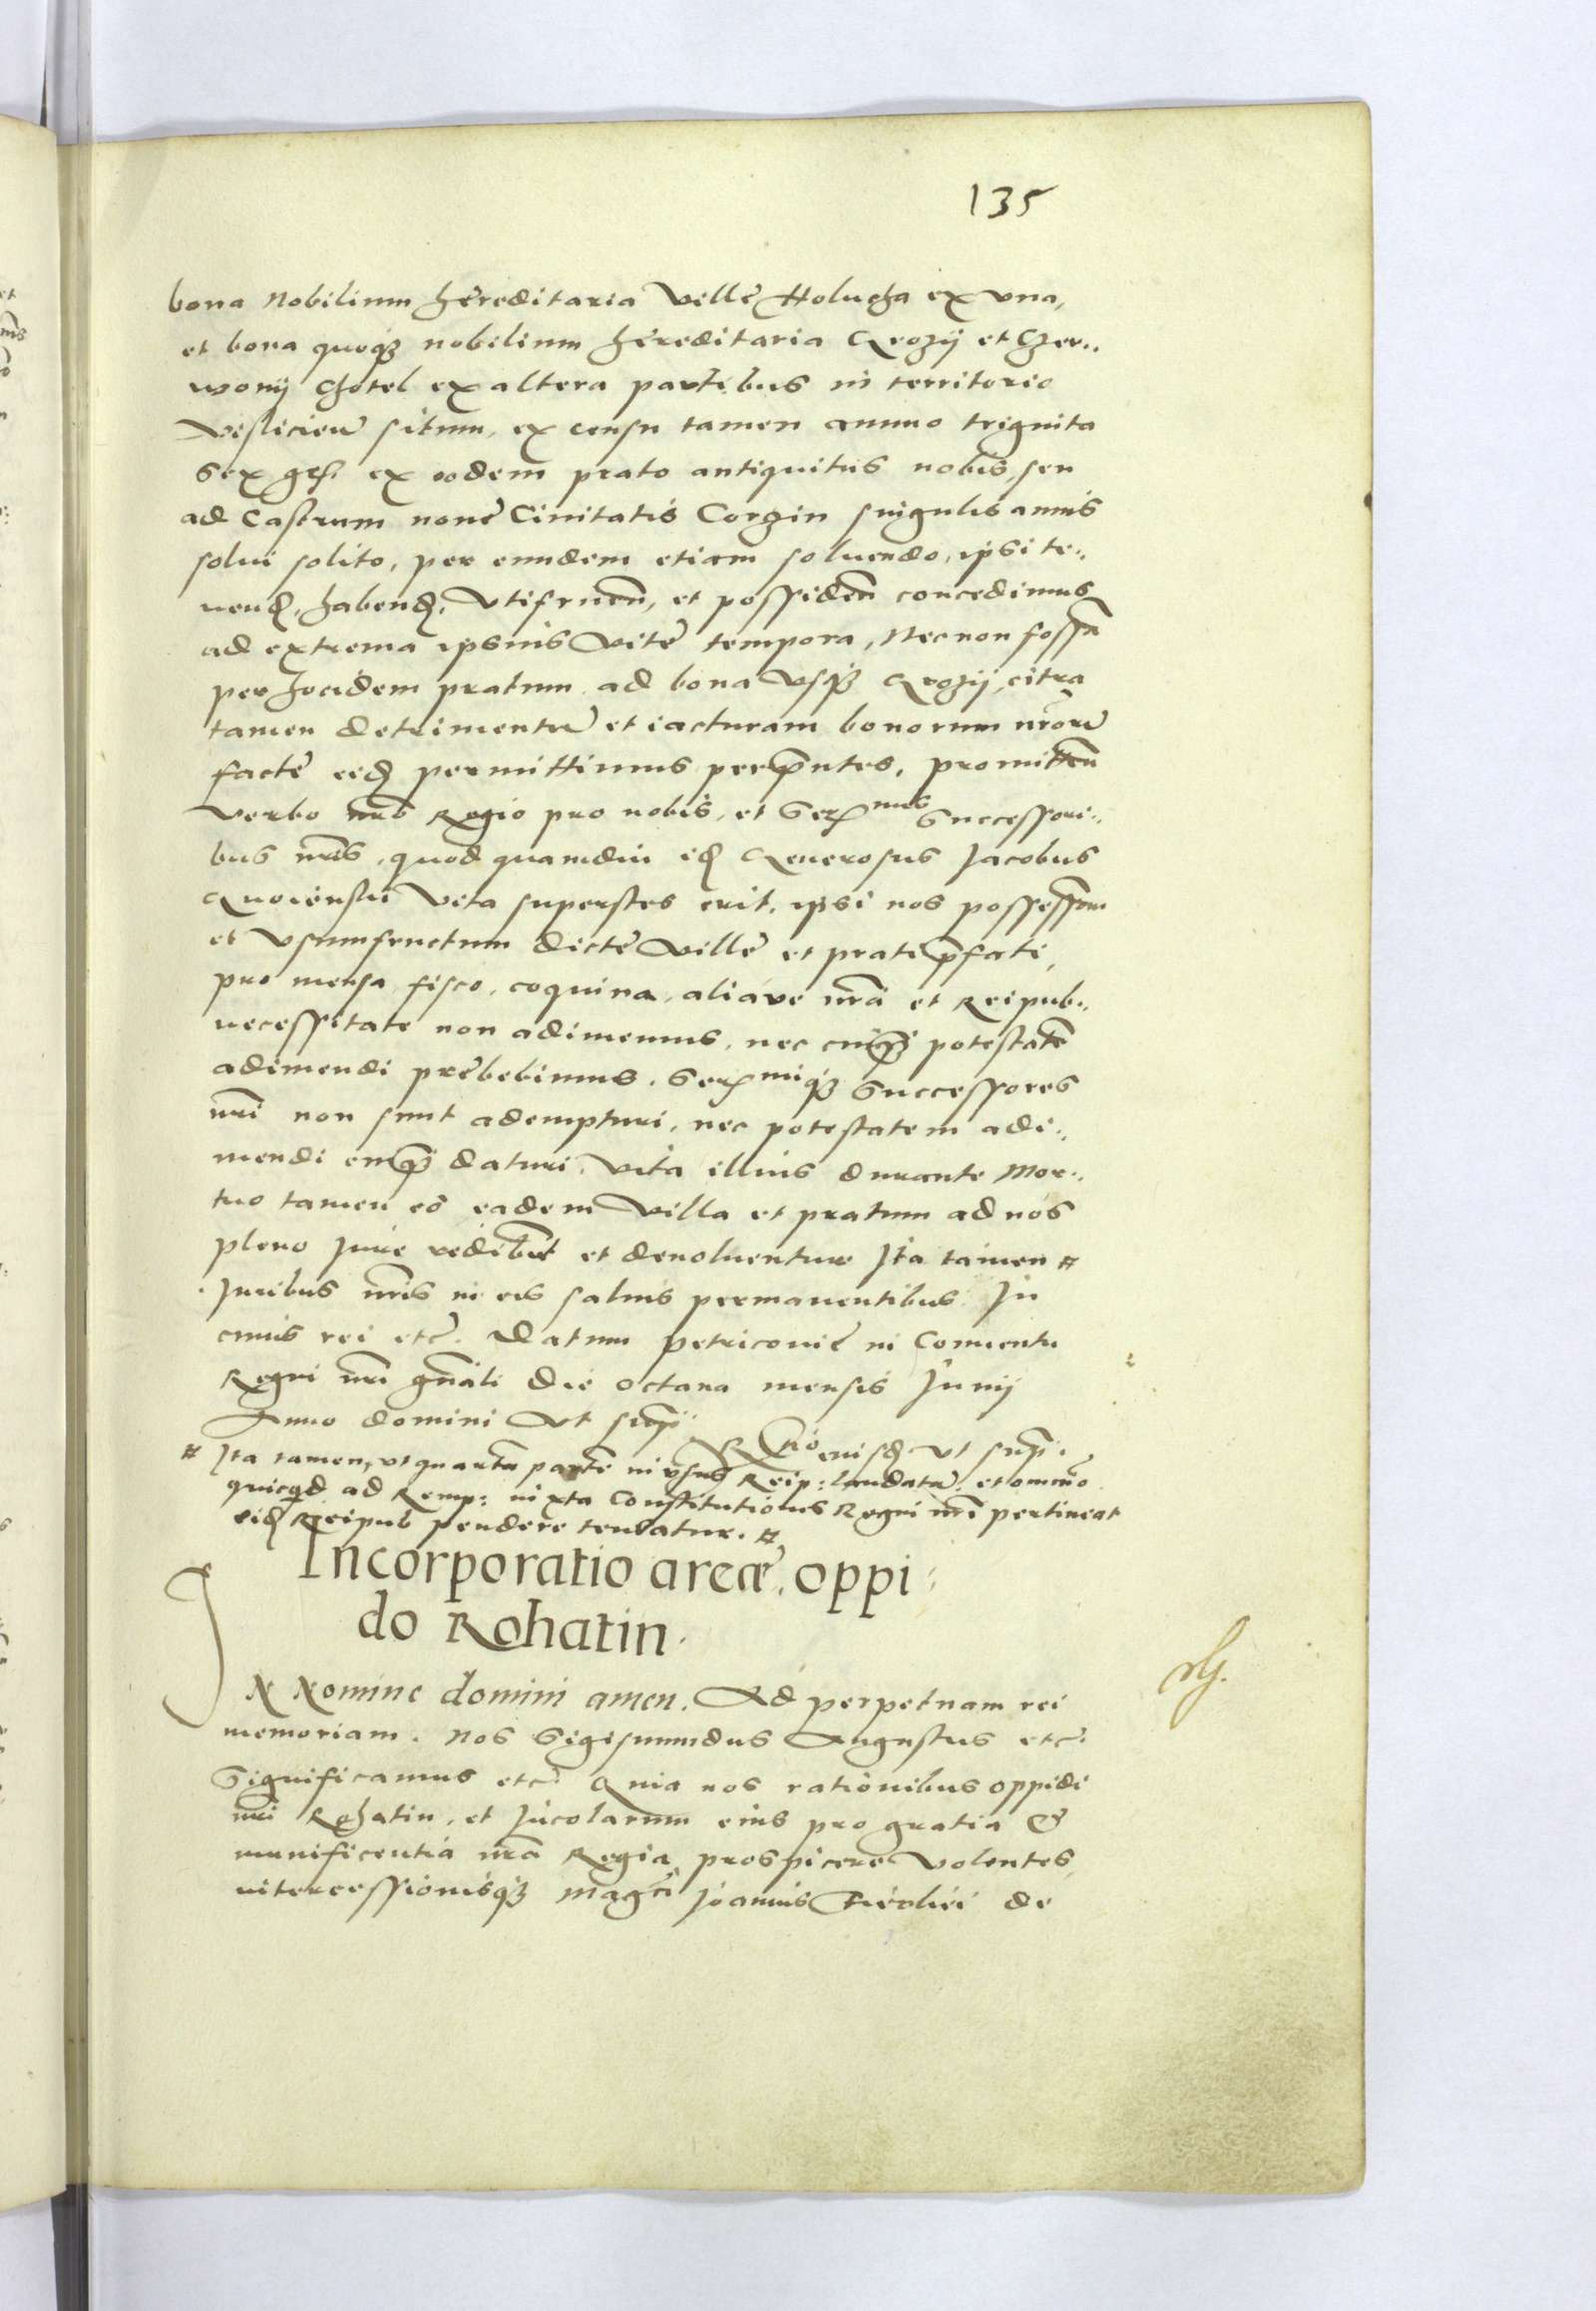 135
bona Nobilium hereditaria Ville Holucha ex vna,
et bona quoq3 nobilium hereditaria Grozij et Czer..
wonij Chotel ex altera partibus in territorio
Visliciens situm, ex censu tamen annuo triginta
sex gros ex eodem prato antiquitus nobis, seu
ad Castrum noue Ciuitatis Corzin singulis annis
solui solito, per eundem etiam soluendo, ipsi te..
nend, habend, Vtifruen, et possiden concedimus
ad extrema ipsius Vite tempora, Necnon fossa
per hocidem pratum ad bona Vsq3 Grozij, citra
tamen detrimentu et iacturam bonorum nroru
facte eid permittimus per pntes, promitten
Verbo nro Regio pro nobis, et Ser mis Successori..
bus nris, quod quamdiu id Generosus Jacobus
Gnoiensky Vita superstes erit, ipsi nos possessione
et Vsumfructum dicte Ville et prati pfati,
pro mensa, fisco, coquina, aliave nra et Reipub..
necessitate non adimemus, nec cuiq3 potestate
adimendi prebebimus. Ser miq3 Successores
nri non sunt adempturi, nec potestatem adi..
mendi cuiq3 daturi, Vita illius durante Mor..
tuo tamen eo eadem Villa et pratum ad nos
pleno Jure redibut et deuoluentur Ita tamen #
Juribus nris in eis saluis permanentibus. In
cuius rei etc. Datum Petricouie in Conuentu
Regni nri gnali die octaua mensis Junij
Anno domini Vt supr.
R tio eiusd Vt supr.
# Ita tamen, vt quarta parte in vsus Reip: laudatu, et omnino
quicqd ad Remp: iuxta Constitutiones Regni nri pertineat
eid Reipub pendere teneatur. #
Incorporatio areae, oppi:
do Rohatin.
IN Nomine domini amen. Ad perpetuam rei
memoriam. Nos Sigismundus Augustus etc.
Significamus etc. Quia nos rationibus oppidi
nri Rohatin, et Incolarum eius pro gratia &
munificentia nra Regia prospicere Volentes,
intercessionisq3 Magci Joannis Firliei de